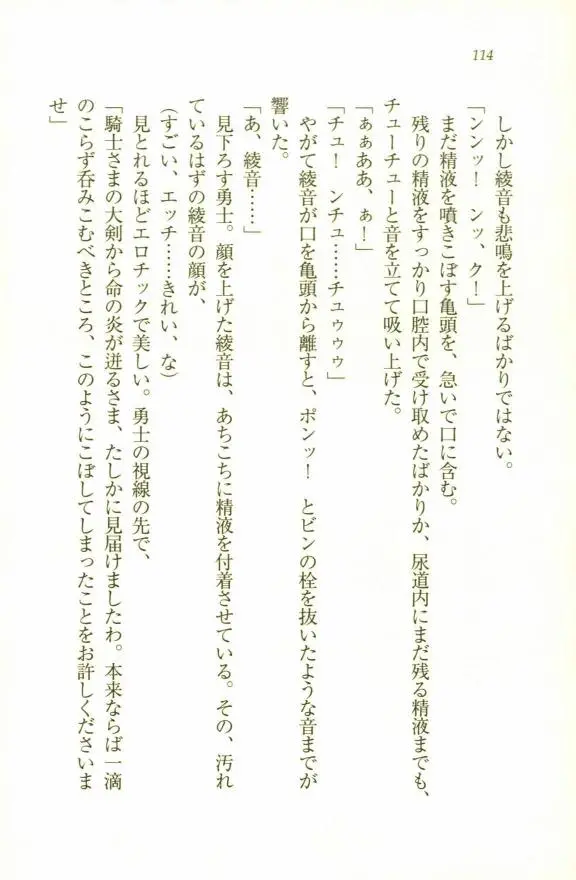 114
しかし綾音も悲鳴を上げるばかりではない。
「ンンッ！　ンッ、ク！」
まだ精液を噴きこぼす亀頭を、急いで口に含む。
残りの精液をすっかり口腔内で受け取めたばかりか、尿道内にまだ残る精液までも、
チューチューと音を立てて吸い上げた。
「ぁぁああ、ぁ！」
「チュ！　ンチュ……チュゥゥゥ」
やがて綾音が口を亀頭から離すと、ポンッ！　とビンの栓を抜いたような音までが
響いた。
「あ、綾音……」
見下ろす勇士。顔を上げた綾音は、あちこちに精液を付着させている。その、汚れ
ているはずの綾音の顔が、
（すごい、エッチ……きれい、な）
見とれるほどエロチックで美しい。勇士の視線の先で、
「騎士さまの大剣から命の炎が迸るさま、たしかに見届けましたわ。本来ならば一滴
のこらず呑みこむべきところ、このようにこぼしてしまったことをお許しくださいま
せ」